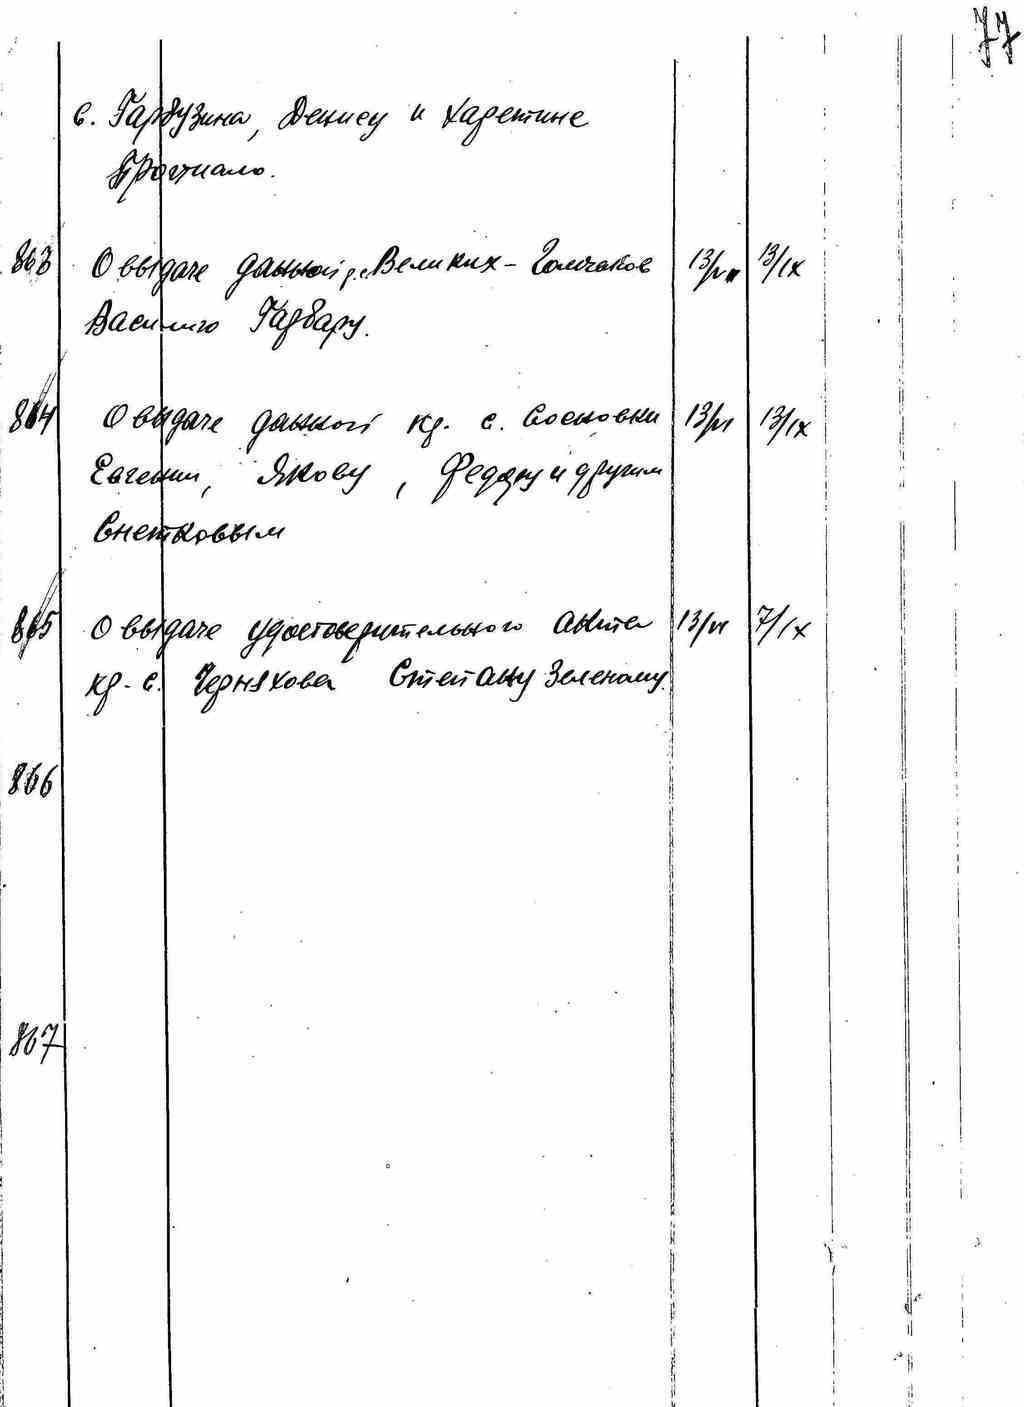 77
с. Гарбузина, Денису и Харетине
863 О выдаче данной г. с. Великих - Голчаков 13/VI 13/IX
Василию Гарбару.
864 О выдаче данной кр. с. Сосновки 13/VI 13/IX
Евгении, Якову, Федору и другим
Снетковым
865 О выдаче удостоверительного акта 13/VI 7/IX
кр. с. Черняхова Степану Зеленому.
866
867